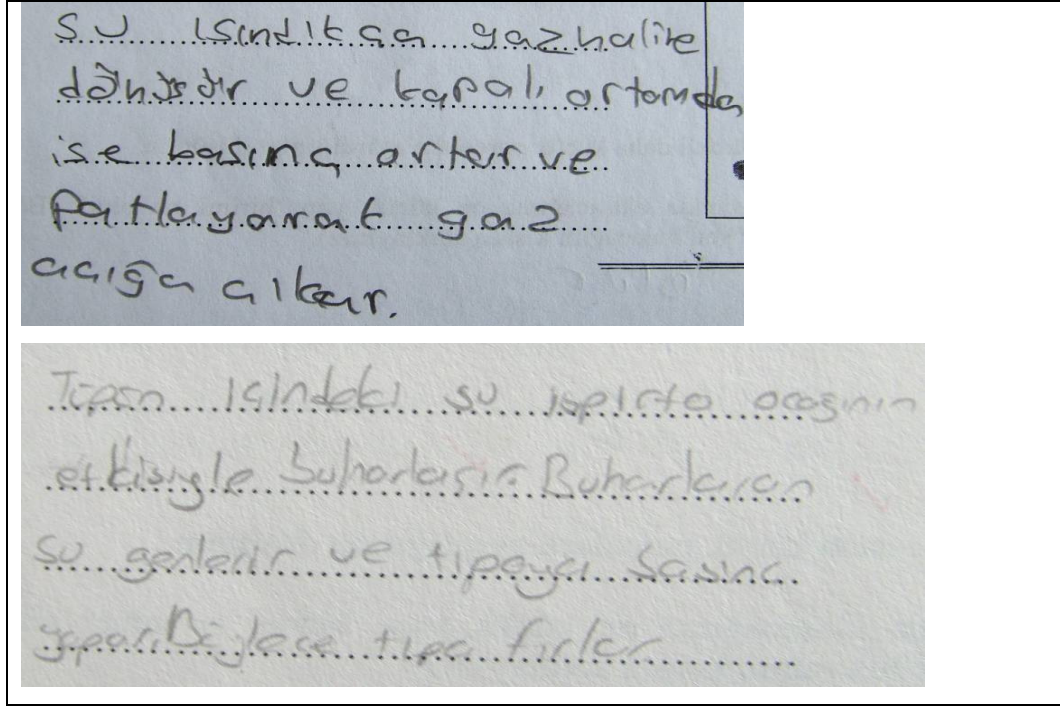 su ısındıkça gaz haline
dönüşür ve kapalı ortamda
ise basınç artar ve
Patlayarak gaz
açığa çıkar.
Tüpün içindeki su ispirto ocağının
etkisiyle buharlaşır Buharlaşan
su genleşir ve tıpaya basınç
yapar. Böylece tıpa fırlar